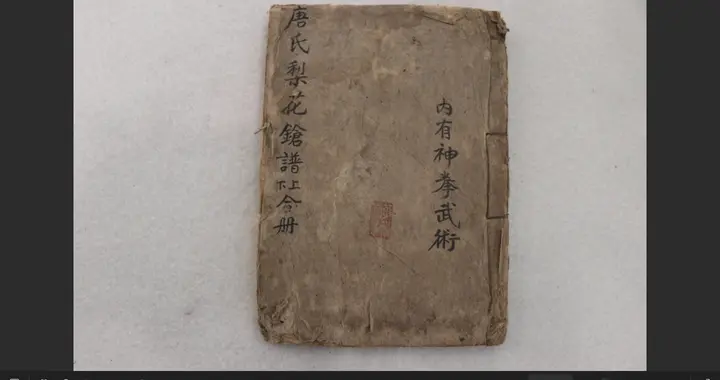 内有神拳武術
唐氏梨花鎗譜上下合册